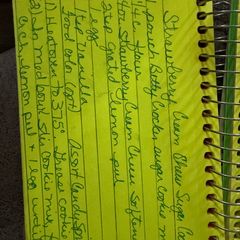 Strawberry Cream Cheese Sugar Co
1 pouch Betty Crocker sugar cookie m
1/4 c flour
4oz strawberry Cream Cheese Softene
2 tsp grated lemon peel
1 egg
1 tsp vanilla
food color (opt) Assort Candy sp
1) Heat oven to 375° Grease cookie
2) In med bowl stir cookie mix, f
C ch, lemon peel + 1 egg until